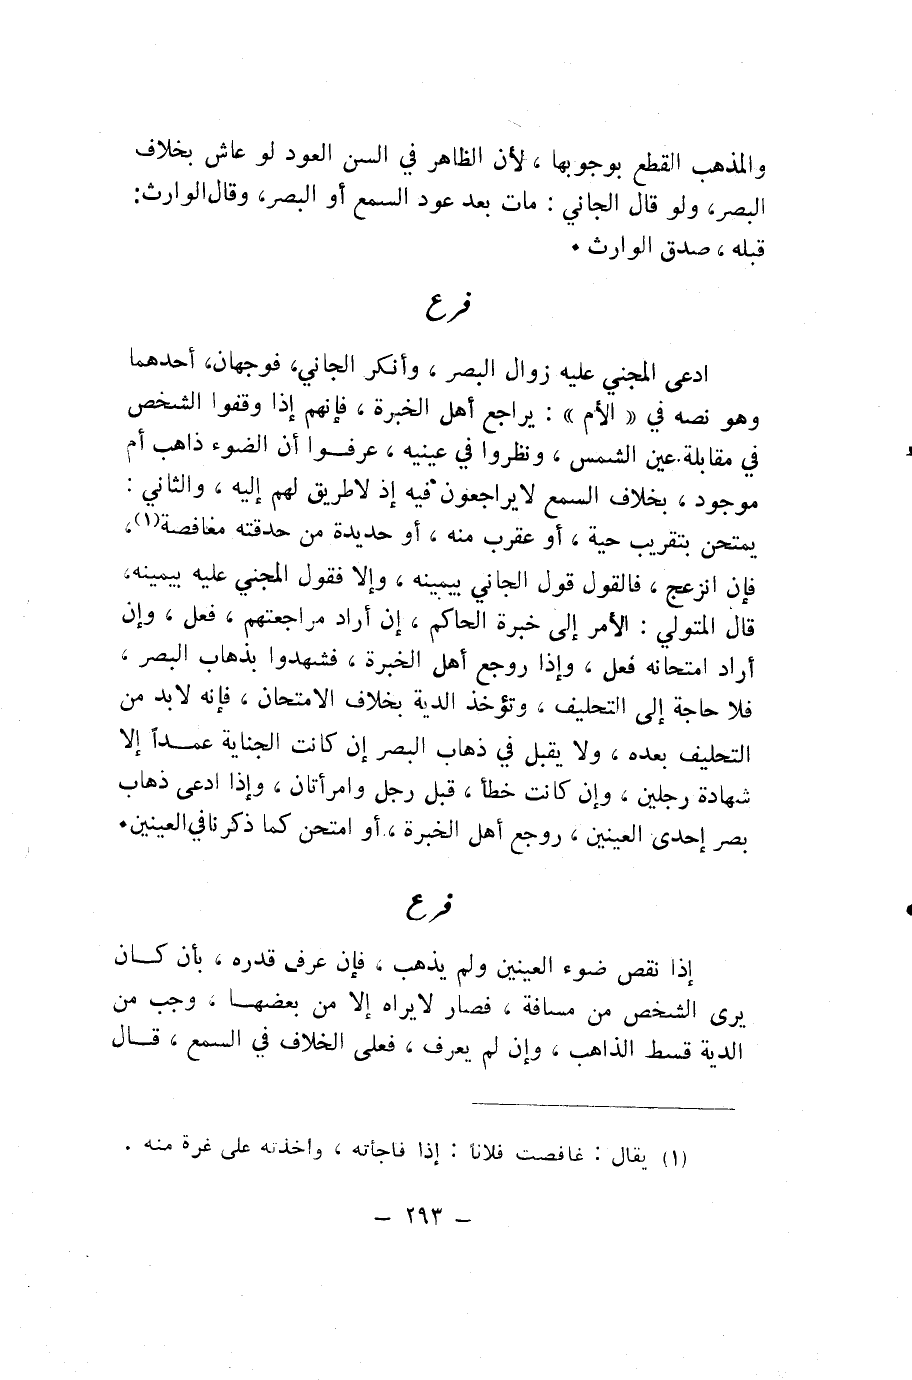 والمذهب القطع بوجوبها ، لأن الظاهر في السن العود لو عاش بخلاف
البصر، ولو قال الجاني : مات بعد عود السمع أو البصر، وقال الوارث:
قبله ، صدق الوارث .
فرع
ادعى المجني عليه زوال البصر ، وأنكر الجاني، فوجهان، أحدهما
وهو نصه في « الأم » : يراجع أهل الخبرة ، فإنهم إذا وقفوا الشخص
في مقابلة عين الشمس ، ونظروا في عينيه ، عرفوا أن الضوء ذاهب أم
موجود ، بخلاف السمع لايراجعون فيه إذ لاطريق لهم إليه ، والثاني :
يمتحن بتقريب حية ، أو عقرب منه ، أو حديدة من حدقته مغافصة(١)،
فإن انزعج ، فالقول قول الجاني بيمينه ، وإلا فقول المجني عليه بيمينه،
قال المتولي : الأمر إلى خبرة الحاكم ، إن أراد مراجعتهم ، فعل ، وإن
أراد امتحانه فعل ، وإذا روجع أهل الخبرة ، فشهدوا بذهاب البصر ،
فلا حاجة إلى التحليف ، وتؤخذ الدية بخلاف الامتحان ، فإنه لابد من
التحليف بعده ، ولا يقبل في ذهاب البصر إن كانت الجناية عمداً إلا
شهادة رجلين ، وإن كانت خطأ ، قبل رجل وامرأتان ، وإذا ادعى ذهاب
بصر إحدى العينين ، روجع أهل الخبرة ، أو امتحن كما ذكرنا في العينين.
فرع
إذا نقص ضوء العينين ولم يذهب ، فإن عرف قدره ، بأن كان
يرى الشخص من مسافة ، فصار لايراه إلا من بعضها ، وجب من
الدية قسط الذاهب ، وإن لم يعرف ، فعلى الخلاف في السمع ، قال
(١) يقال : غافصت فلاناً : إذا فاجأته ، وأخذته على غرة منه .
– ٢٩٣ –